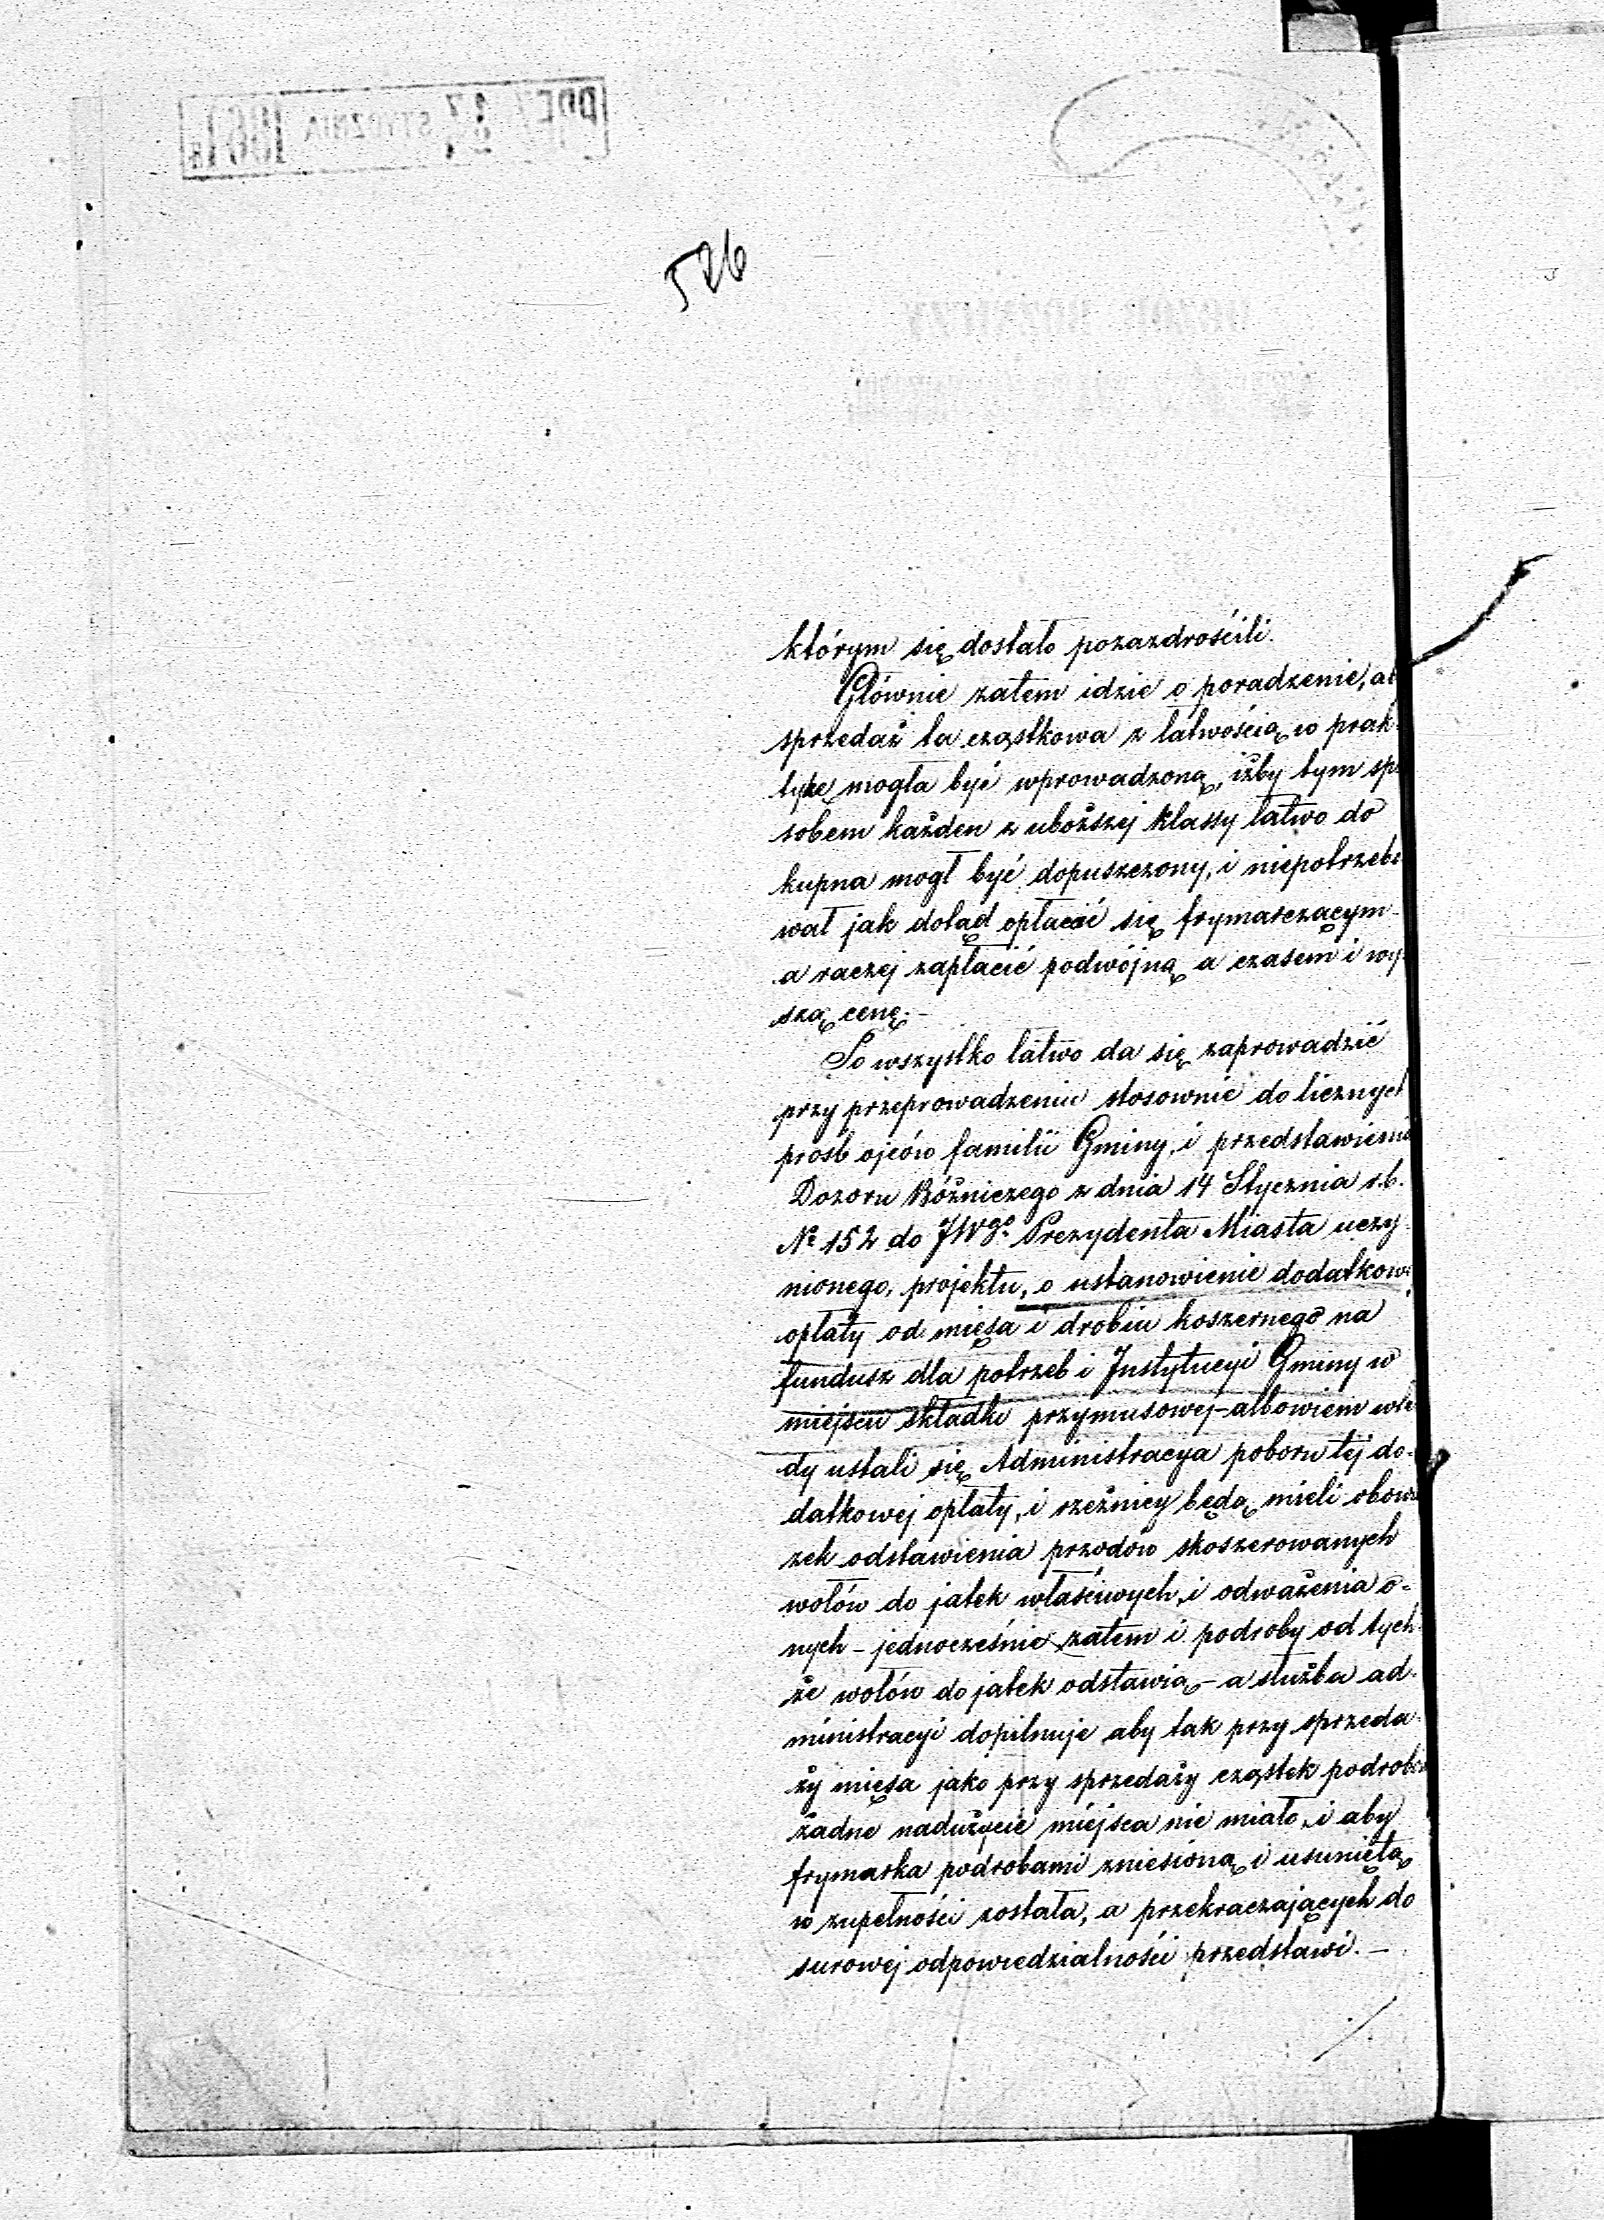 526
którym się dostało pozazdrościli.
Głównie zatem idzie o poradzenie, ab
sprzedaż ta cząstkowa z łatwością w prak
tykę mogła być wprowadzoną, iżby tym spo
sobem każden z uboższej klassy łatwo do
kupna mogł być dopuszczony, i niepotrzebo
wał jak dotąd opłacać się frymarczącym
a raczej zapłacić podwójną a czasem i wy
szą cenę.—
To wszystko łatwo da się zaprowadzić
przy przeprowadzeniu stosownie do licznych
prośb ojców familii Gminy, i przedstawienia
Dozoru Bóżniczego z dnia 14 Stycznia r.b.
№ 152 do JWgo Prezydenta Miasta uczy
nionego, projektu, o ustanowienie dodatkowej
opłaty od mięsa i drobiu koszernego na
fundusz dla potrzeb i Instytucyi Gminy w
miejscu składki przymusowej—albowiem wte
dy ustali się Administracya poboru tej do-
datkowej opłaty, i rzeźnicy będą mieli obowią
zek odstawienia przodów skoszerowanych
wołów do jatek właściwych, i odważenia o-
nych—jednocześnie zatem i podroby od tych
że wołów do jatek odstawią—a służba ad-
ministracyi dopilnuje aby tak przy sprzeda-
ży mięsa jako przy sprzedaży cząstek podrobów
żadne nadużycie miejsca nie miało, i aby
frymarka podrobami zniesioną i usuniętą
w zupełności została, a przekraczających do
surowej odpowiedzialności przedstawi.—